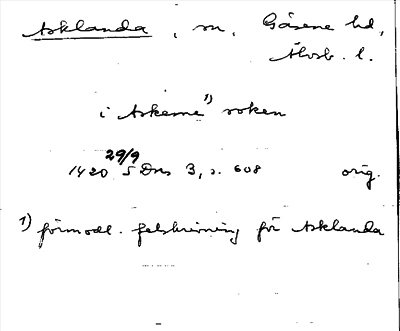 Asklanda, sn, Gäsene hd,
Älvsb. l.
i Askeme¹⁾ soken
29/9
1420 SDns 3, s. 608 orig.
1) förmodl. felskrivning för Asklanda